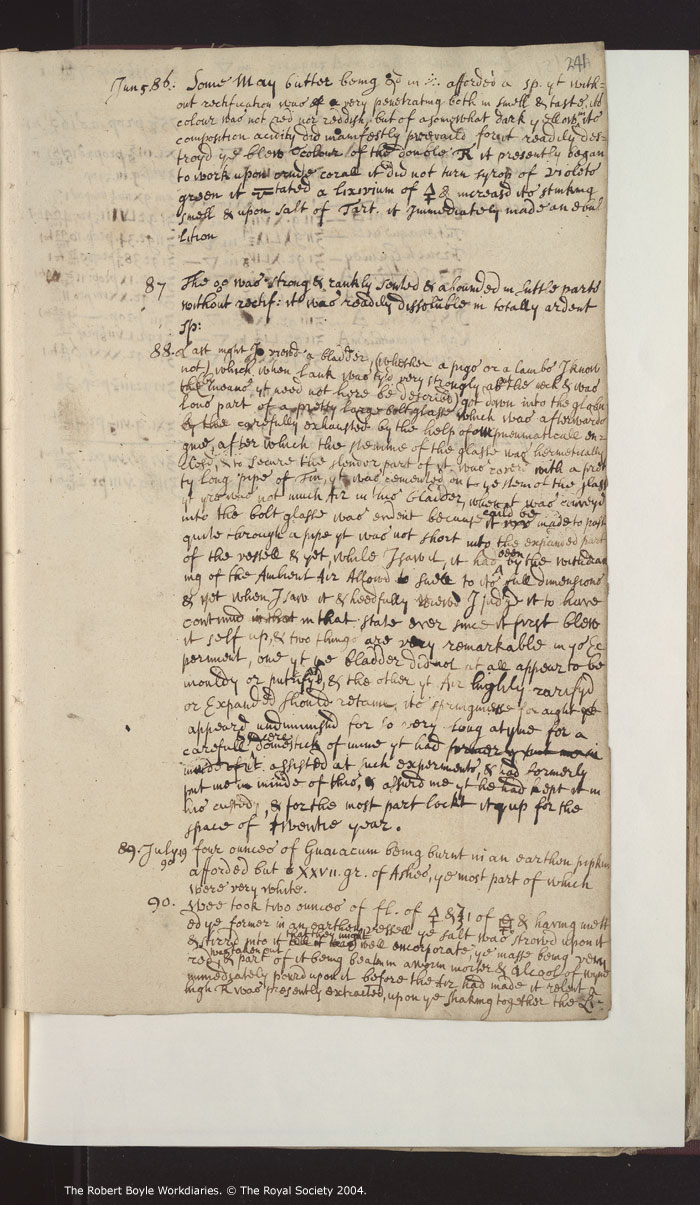 241
Jun 5 86: Some May butter being in afforded a sp. yt with=
out rectification was a very penetrating both in smell & taste, its
colour was not red nor reddish, but of a somwhat dark yellow, its
composition acidity did manifestly prevaild for it readily des=
troyd ye blew colour of the double it presently began
to work upon crude coral it did not turn syrop of violets
green it a lixivium of & increasd its stinking
smell & upon salt of Tart. it Immediately made an ebul
lition
87 The was strong & rankly sented & abounded in parts
without rectif: it was readily dissoluble in totally ardent
sp:
88. Last night I viewd a bladder, (whether a pigs or a lambs I know
not) which when lank was tyd very strongly at the neck & was
(by means yt need not here be described) got down into the globu
lous part of a pretty large boltglasse which was afterwards
by the carefully exhausted by the help of our pneumaticall en=
gine, after which the stemme of the glasse was hermetically
seald, & to secure the slender part of yt was coverd with a pret
ty long pipe of Tin, yt was cemented on to ye stem of the glass
yt yre was not much Air in this bladder, when it was conveyd
into the bolt glasse was evident because it could be made to pass
quite through a pipe yt was not short into the expanded part
of the vessell & yet, while I saw it, it had been by the withdraw
ing of the Ambient Air Allowd to swell to its full dimensions
& yet when I saw it & heedfully viewd I judge it to have
continud in that in that state ever since it first blew
it self up, & two things are very remarkable in ys Ex
periment, one yt ye bladder did not at all appear to be
mouldy or putrifyd, & the other yt Air highly rarifyd
or Expanded should retain, its springinesse for aught
appeard undiminishd for so very long a tyme for a
carefull & sincere domestick of mine yt had formerly
assisted at such experiments, & had formerly
put me in minde of this, & assurd me yt he had kept it in
his custody, & for the most part lockt it up for the
space of twentie year.
89. July 19 four ounces of Guaiacum being burnt in an earthen pipkin
90
afforded but XXVII. gr. of Ashes, ye most part of which
were very white.
90. Wee took two ounces of fl. of & of & having melt
ed ye former in an earthen vessell ye salt was strowd upon it
& stirrd into it that they might well encorporate, ye masse being very
red, & was taken out part of it being beaten in a warm morter & Alcool of wine
immediately pourd upon it before the Air had made it relent a
high was presently extracted, upon ye shaking together the Li=
The Robert Boyle Workdiaries. © The Royal Society 2004.